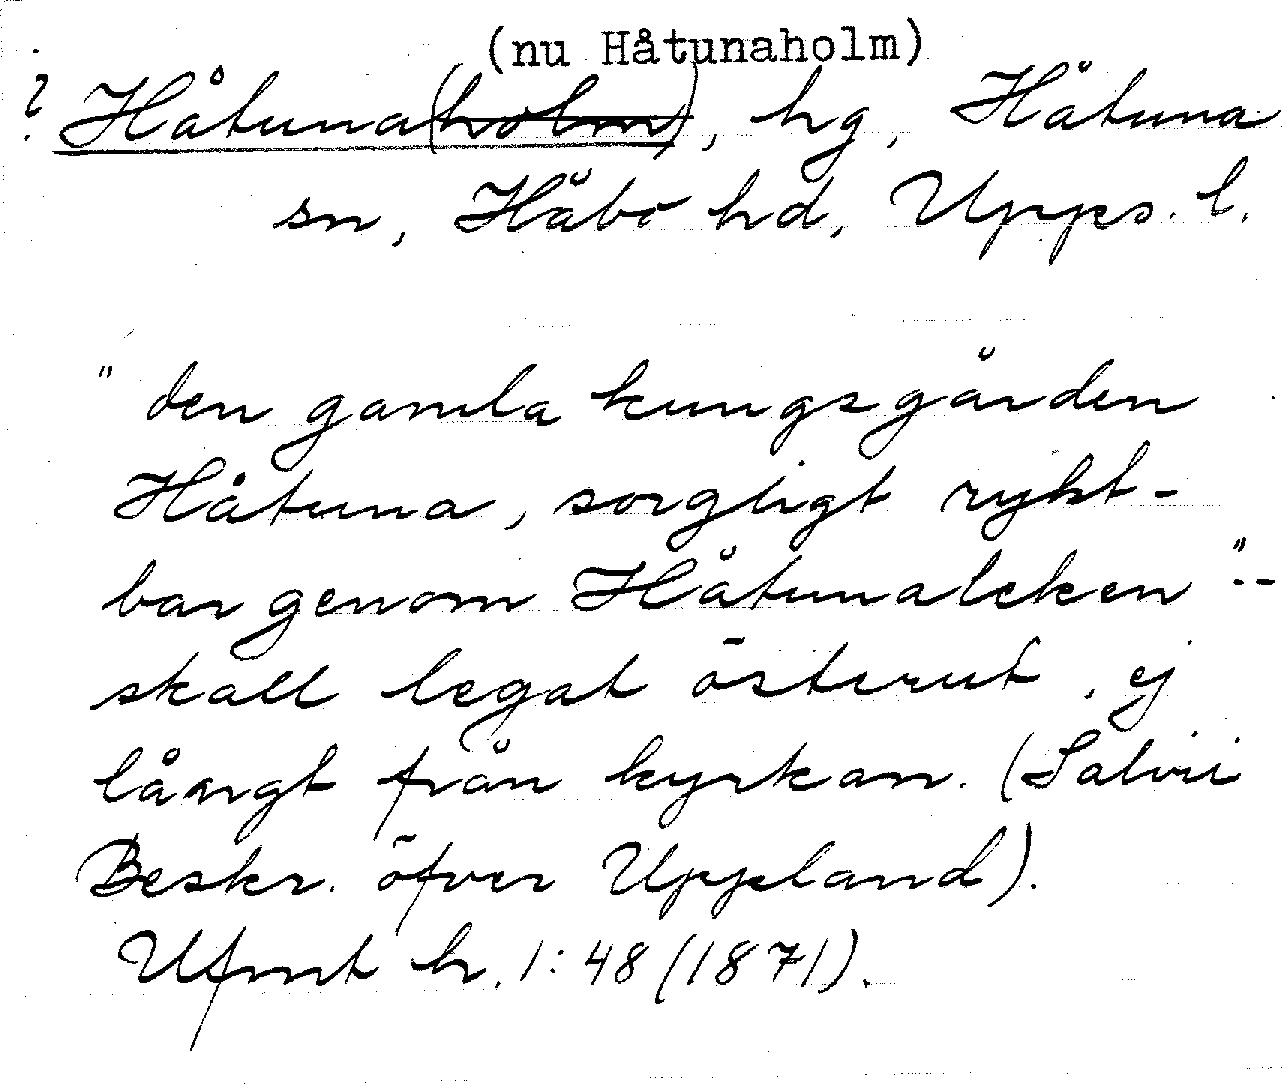 (nu Håtunaholm)
? Håtuna(holm), hg, Håtuna
sn, Håbo hd, Upps. l.
"den gamla kungsgården
Håtuna, sorgligt rykt-
bar genom Håtunaleken" --
skall legat österut, ej
långt från kyrkan. (Salvii
Beskr. öfver Uppland).
Ufmt h. 1:48 (1871).